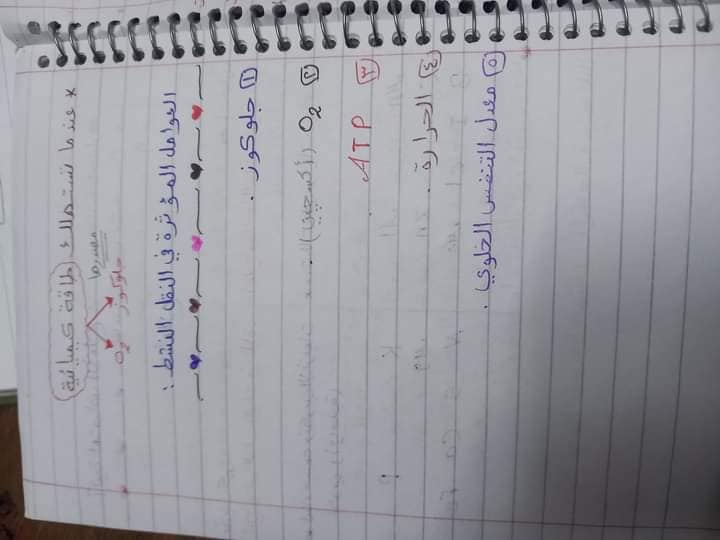 * عندما تستهلك (طاقة كيميائية)
مصدرها
جلوكوز O2
العوامل المؤثرة في النقل النشط :
① جلوكوز .
② O2 (أكسجين)
③ ATP .
④ الحرارة .
⑤ معدل التنفس الخلوي .